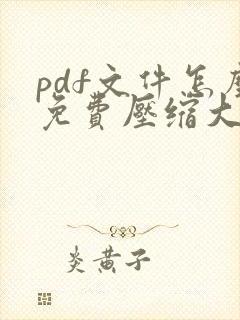 pdf文件怎麼
免費壓缩大
炎黄子